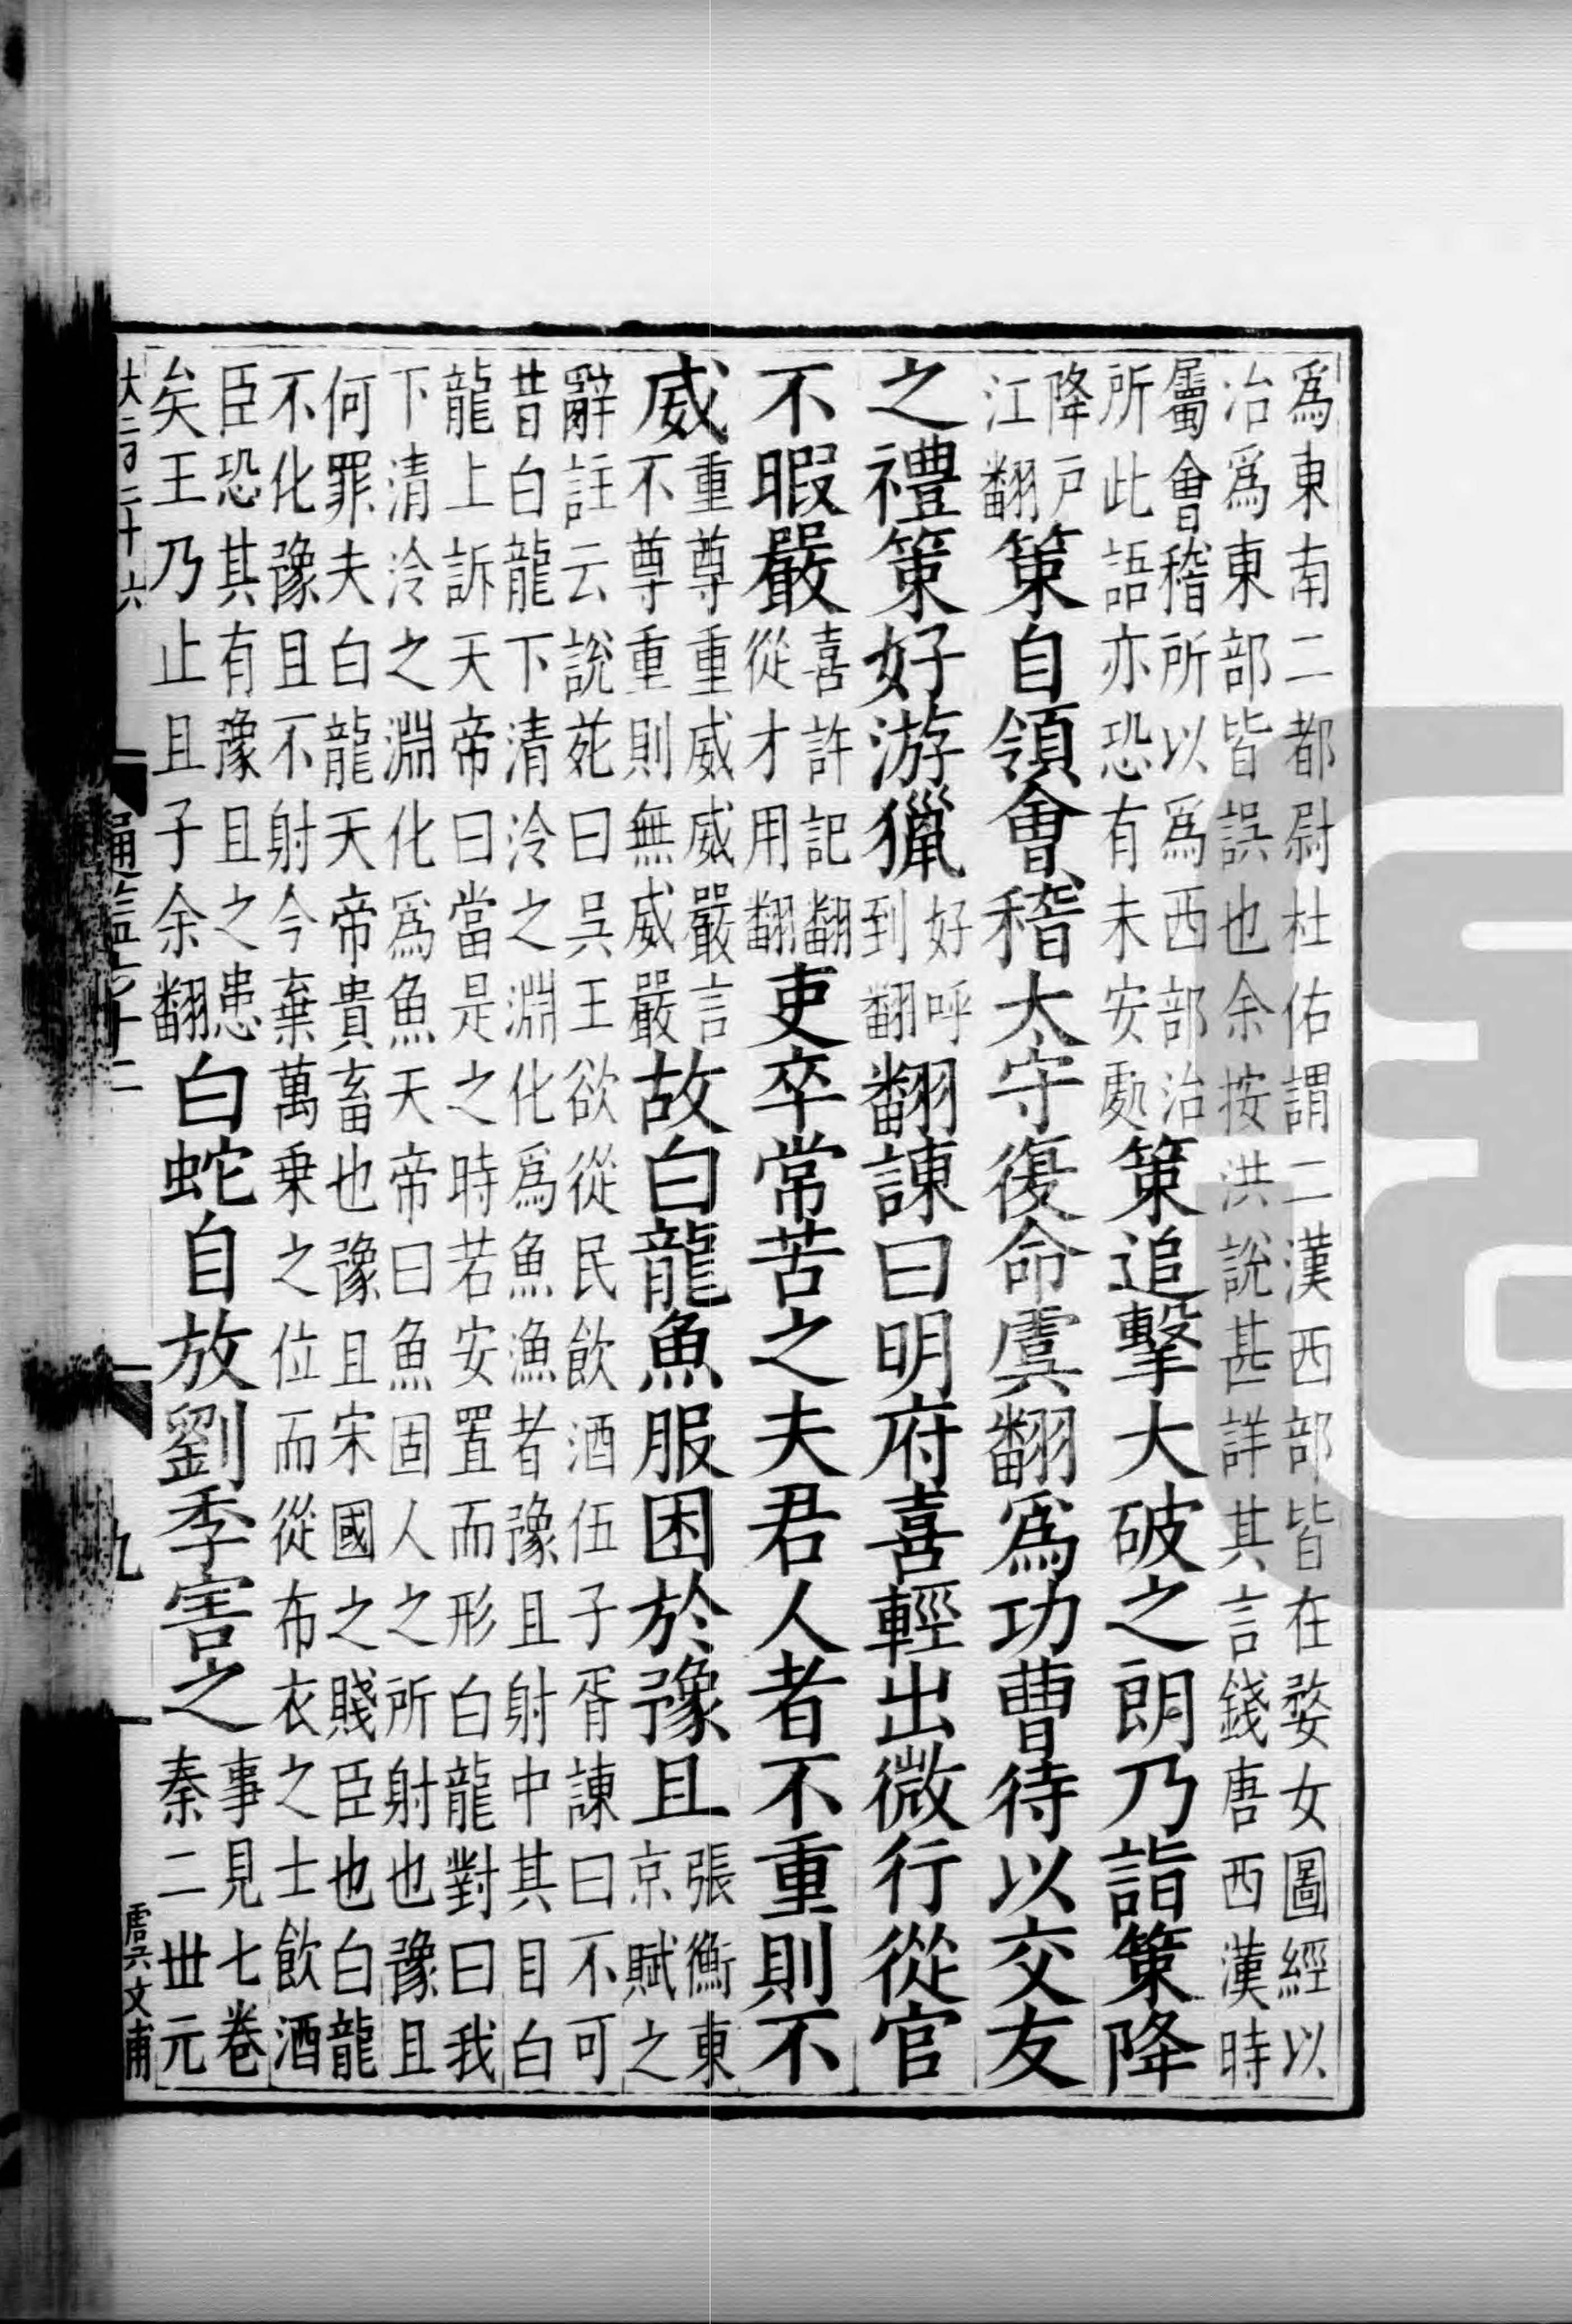 爲東南二都尉杜佑謂二漢西部皆在婺女圖經以
治爲東部皆誤也余按洪說甚詳其言錢唐西漢時
屬會稽所以爲西部治
所此語亦恐有未安處
策追擊大破之朗乃詣策降
降戸
江翻
策自領會稽太守復命虞翻爲功曹待以交友
之禮策好游獵
好呼
到翻
翻諫曰明府喜輕出微行從官
不暇嚴
喜許記翻
從才用翻
吏卒常苦之夫君人者不重則不
威
重尊重威威嚴言
不尊重則無威嚴
故白龍魚服困於豫且
張衡東
京賦之
辭註云說苑曰吳王欲從民飲酒伍子胥諫曰不可
昔白龍下清泠之淵化爲魚漁者豫且射中其目白
龍上訴天帝曰當是之時若安置而形白龍對曰我
下清泠之淵化爲魚天帝曰魚固人之所射也豫且
何罪夫白龍天帝貴畜也豫且宋國之賤臣也白龍
不化豫且不射今棄萬乗之位而從布衣之士飲酒
臣恐其有豫且之患
矣王乃止且子余翻
白蛇自放劉季害之
事見七卷
秦二丗元
九
虞文甫